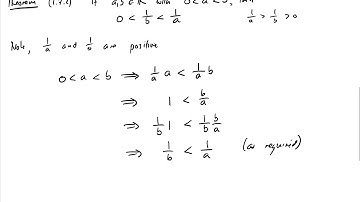 Theorem (1.4.2) If a, b ∈ R with 0 < a < b, then
0 < 1/b < 1/a 1/a > 1/b > 0
Note, 1/a and 1/b are positive
0 < a < b ⟹ 1/a a < 1/a b
⟹ 1 < b/a
⟹ 1/b 1 < 1/b b/a
⟹ 1/b < 1/a (as required)